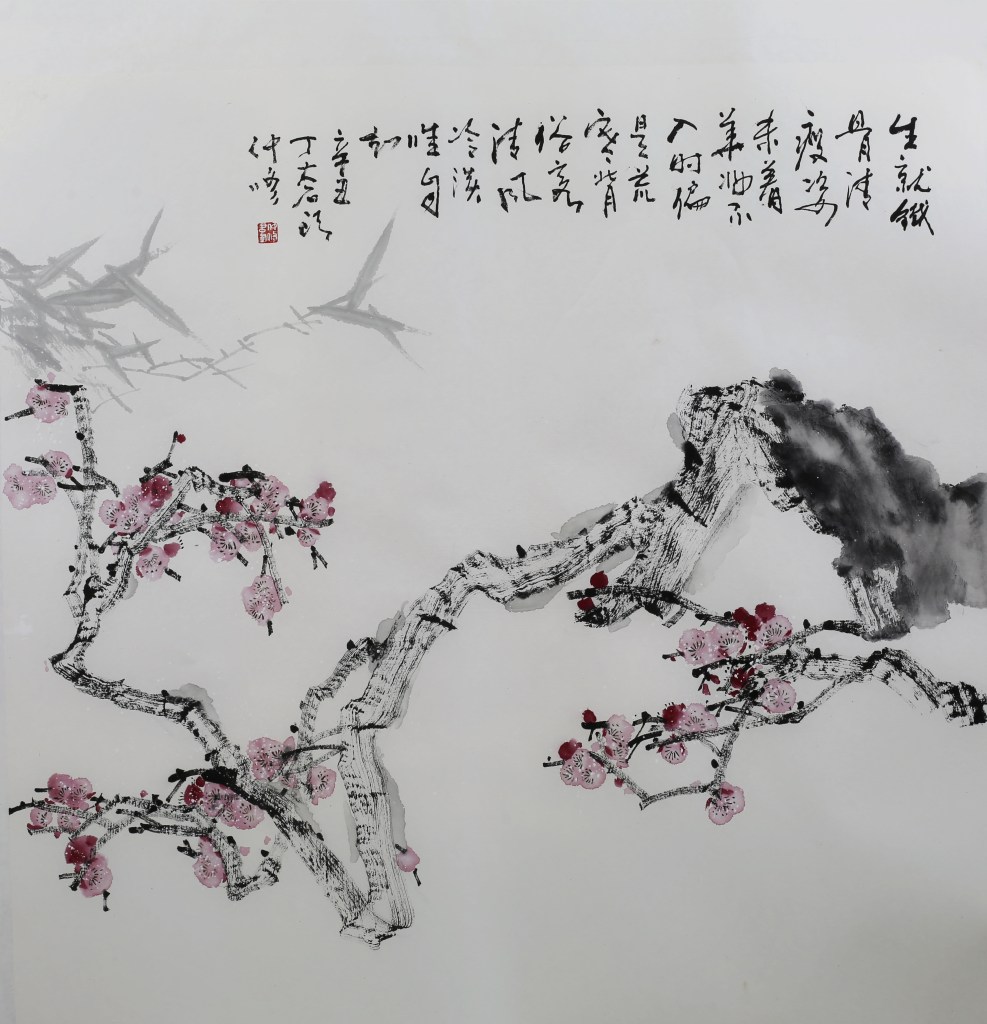 生就鐵
骨清
瘦姿
未着
華妝不
入时偏
是荒
寒背
俗客
清风
冷淡
唯自
知
辛丑
丁大石
仲